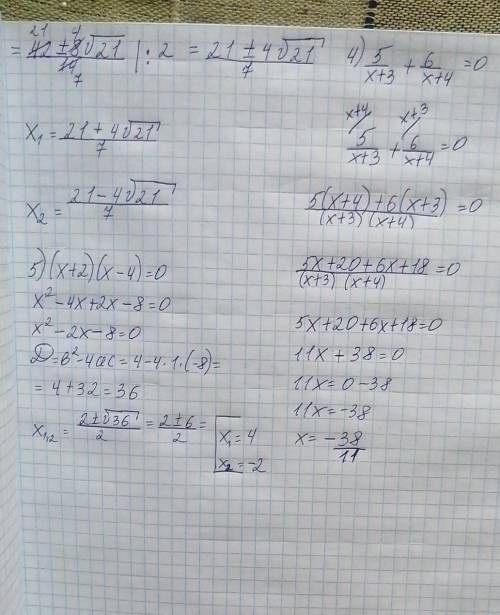 = 42 ± 8√21 / 14 | : 2 = 21 ± 4√21 / 7
21 4
7
x₁ = 21 + 4√21 / 7
x₂ = 21 - 4√21 / 7
5) (x+2)(x-4)=0
x² - 4x + 2x - 8 = 0
x² - 2x - 8 = 0
D = b² - 4ac = 4 - 4 · 1 · (-8) =
= 4 + 32 = 36
x₁,₂ = 2 ± √36 / 2 = 2 ± 6 / 2 = [ x₁ = 4
x₂ = -2
4) 5/x+3 + 6/x+4 = 0
x+4 x+3
5/x+3 + 6/x+4 = 0
5(x+4) + 6(x+3) / (x+3)(x+4) = 0
5x + 20 + 6x + 18 / (x+3)(x+4) = 0
5x + 20 + 6x + 18 = 0
11x + 38 = 0
11x = 0 - 38
11x = -38
x = -38/11